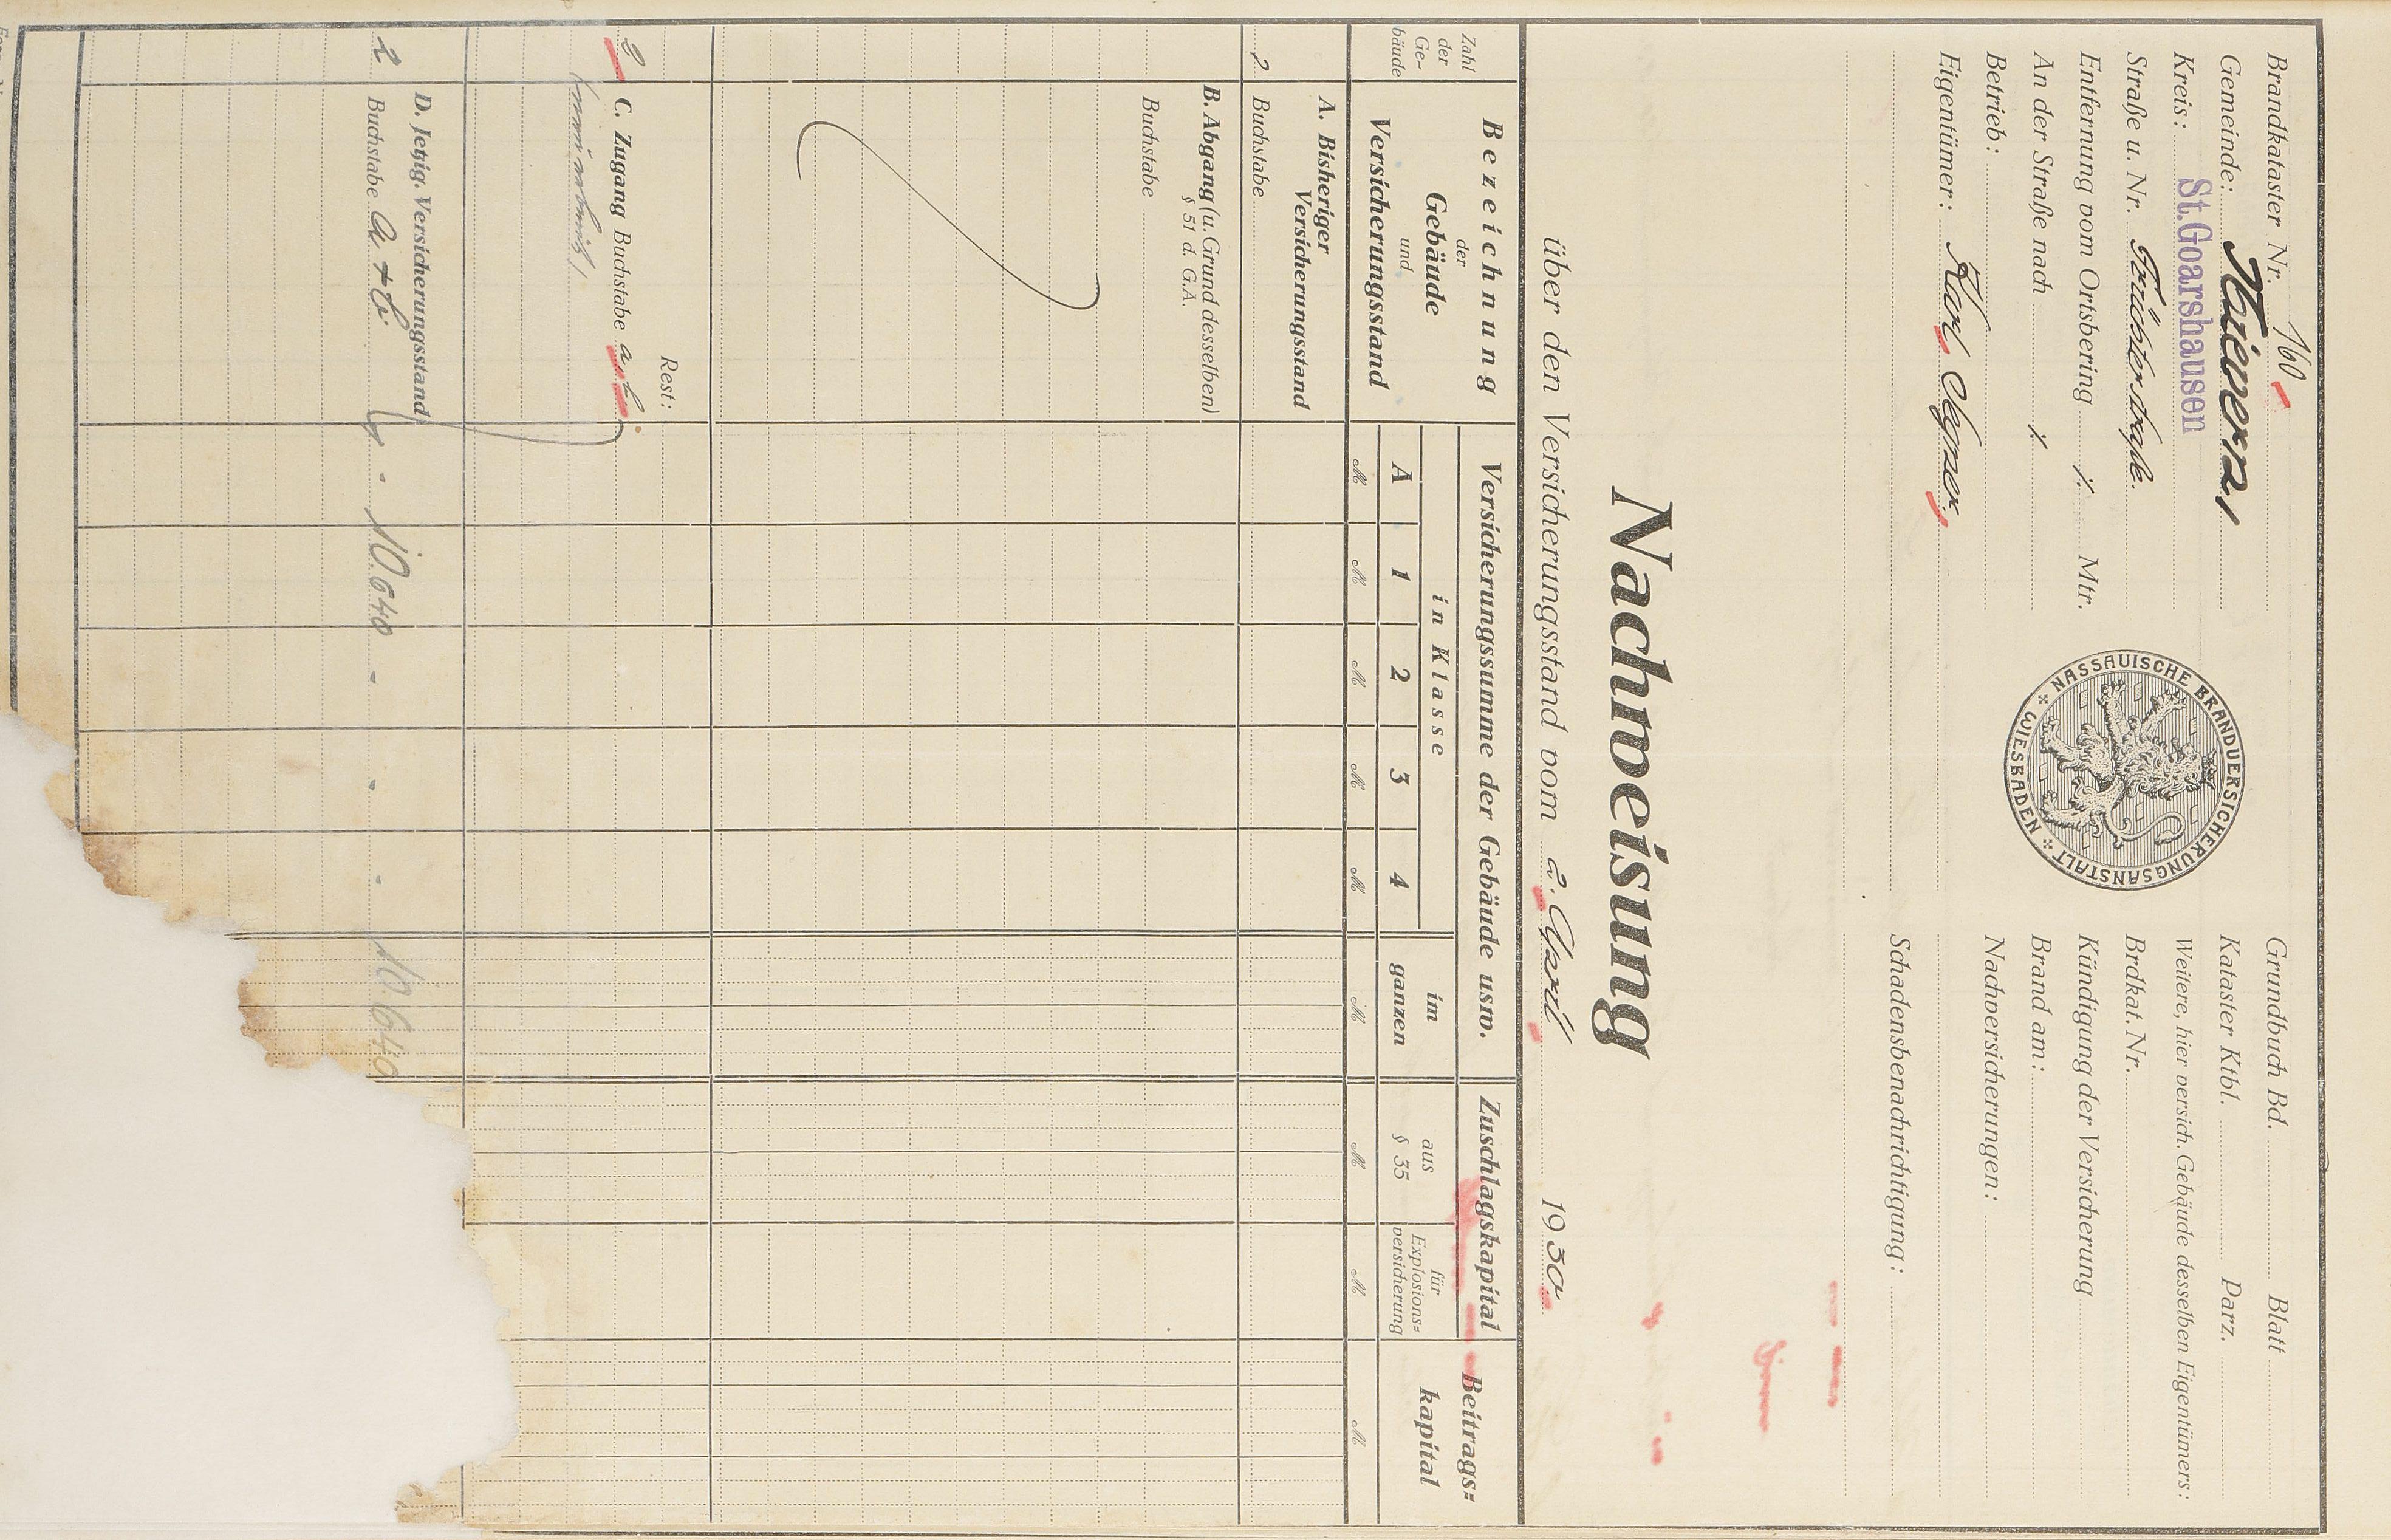 Brandkataster Nr. 160
Gemeinde: Nievern,
Kreis: St.Goarshausen
Straße u. Nr. Früchterstraße.
Entfernung vom Ortsbering ./. Mtr.
An der Straße nach ./.
Betrieb:
Eigentümer: Karl
NASSAUISCHE BRANDVERSICHERUNGSANSTALT WIESBADEN
Grundbuch Bd. Blatt
Kataster Ktbl. Parz.
Weitere, hier versich. Gebäude desselben Eigentümers:
Brdkat. Nr.
Kündigung der Versicherung
Brand am:
Nachversicherungen:
Schadensbenachrichtigung:
Nachweisung
über den Versicherungsstand vom 2. April 1930.
Zahl
der
Ge-
bäude
Bezeichnung
der
Gebäude
und
Versicherungsstand
Versicherungssumme der Gebäude usw.
in Klasse
A 1 2 3 4
im
ganzen
Zuschlagskapital
aus
§ 35
für
Explosions-
versicherung
Beitrags-
kapital
M M M M M M M M M
A. Bisheriger
Versicherungsstand
? Buchstabe
B. Abgang (u. Grund desselben)
§ 51 d. G.A.
Buchstabe
Rest:
2 C. Zugang Buchstabe a, b.
D. Jetzig. Versicherungsstand
2 Buchstabe a + b. - 10.640 - - - 10.640